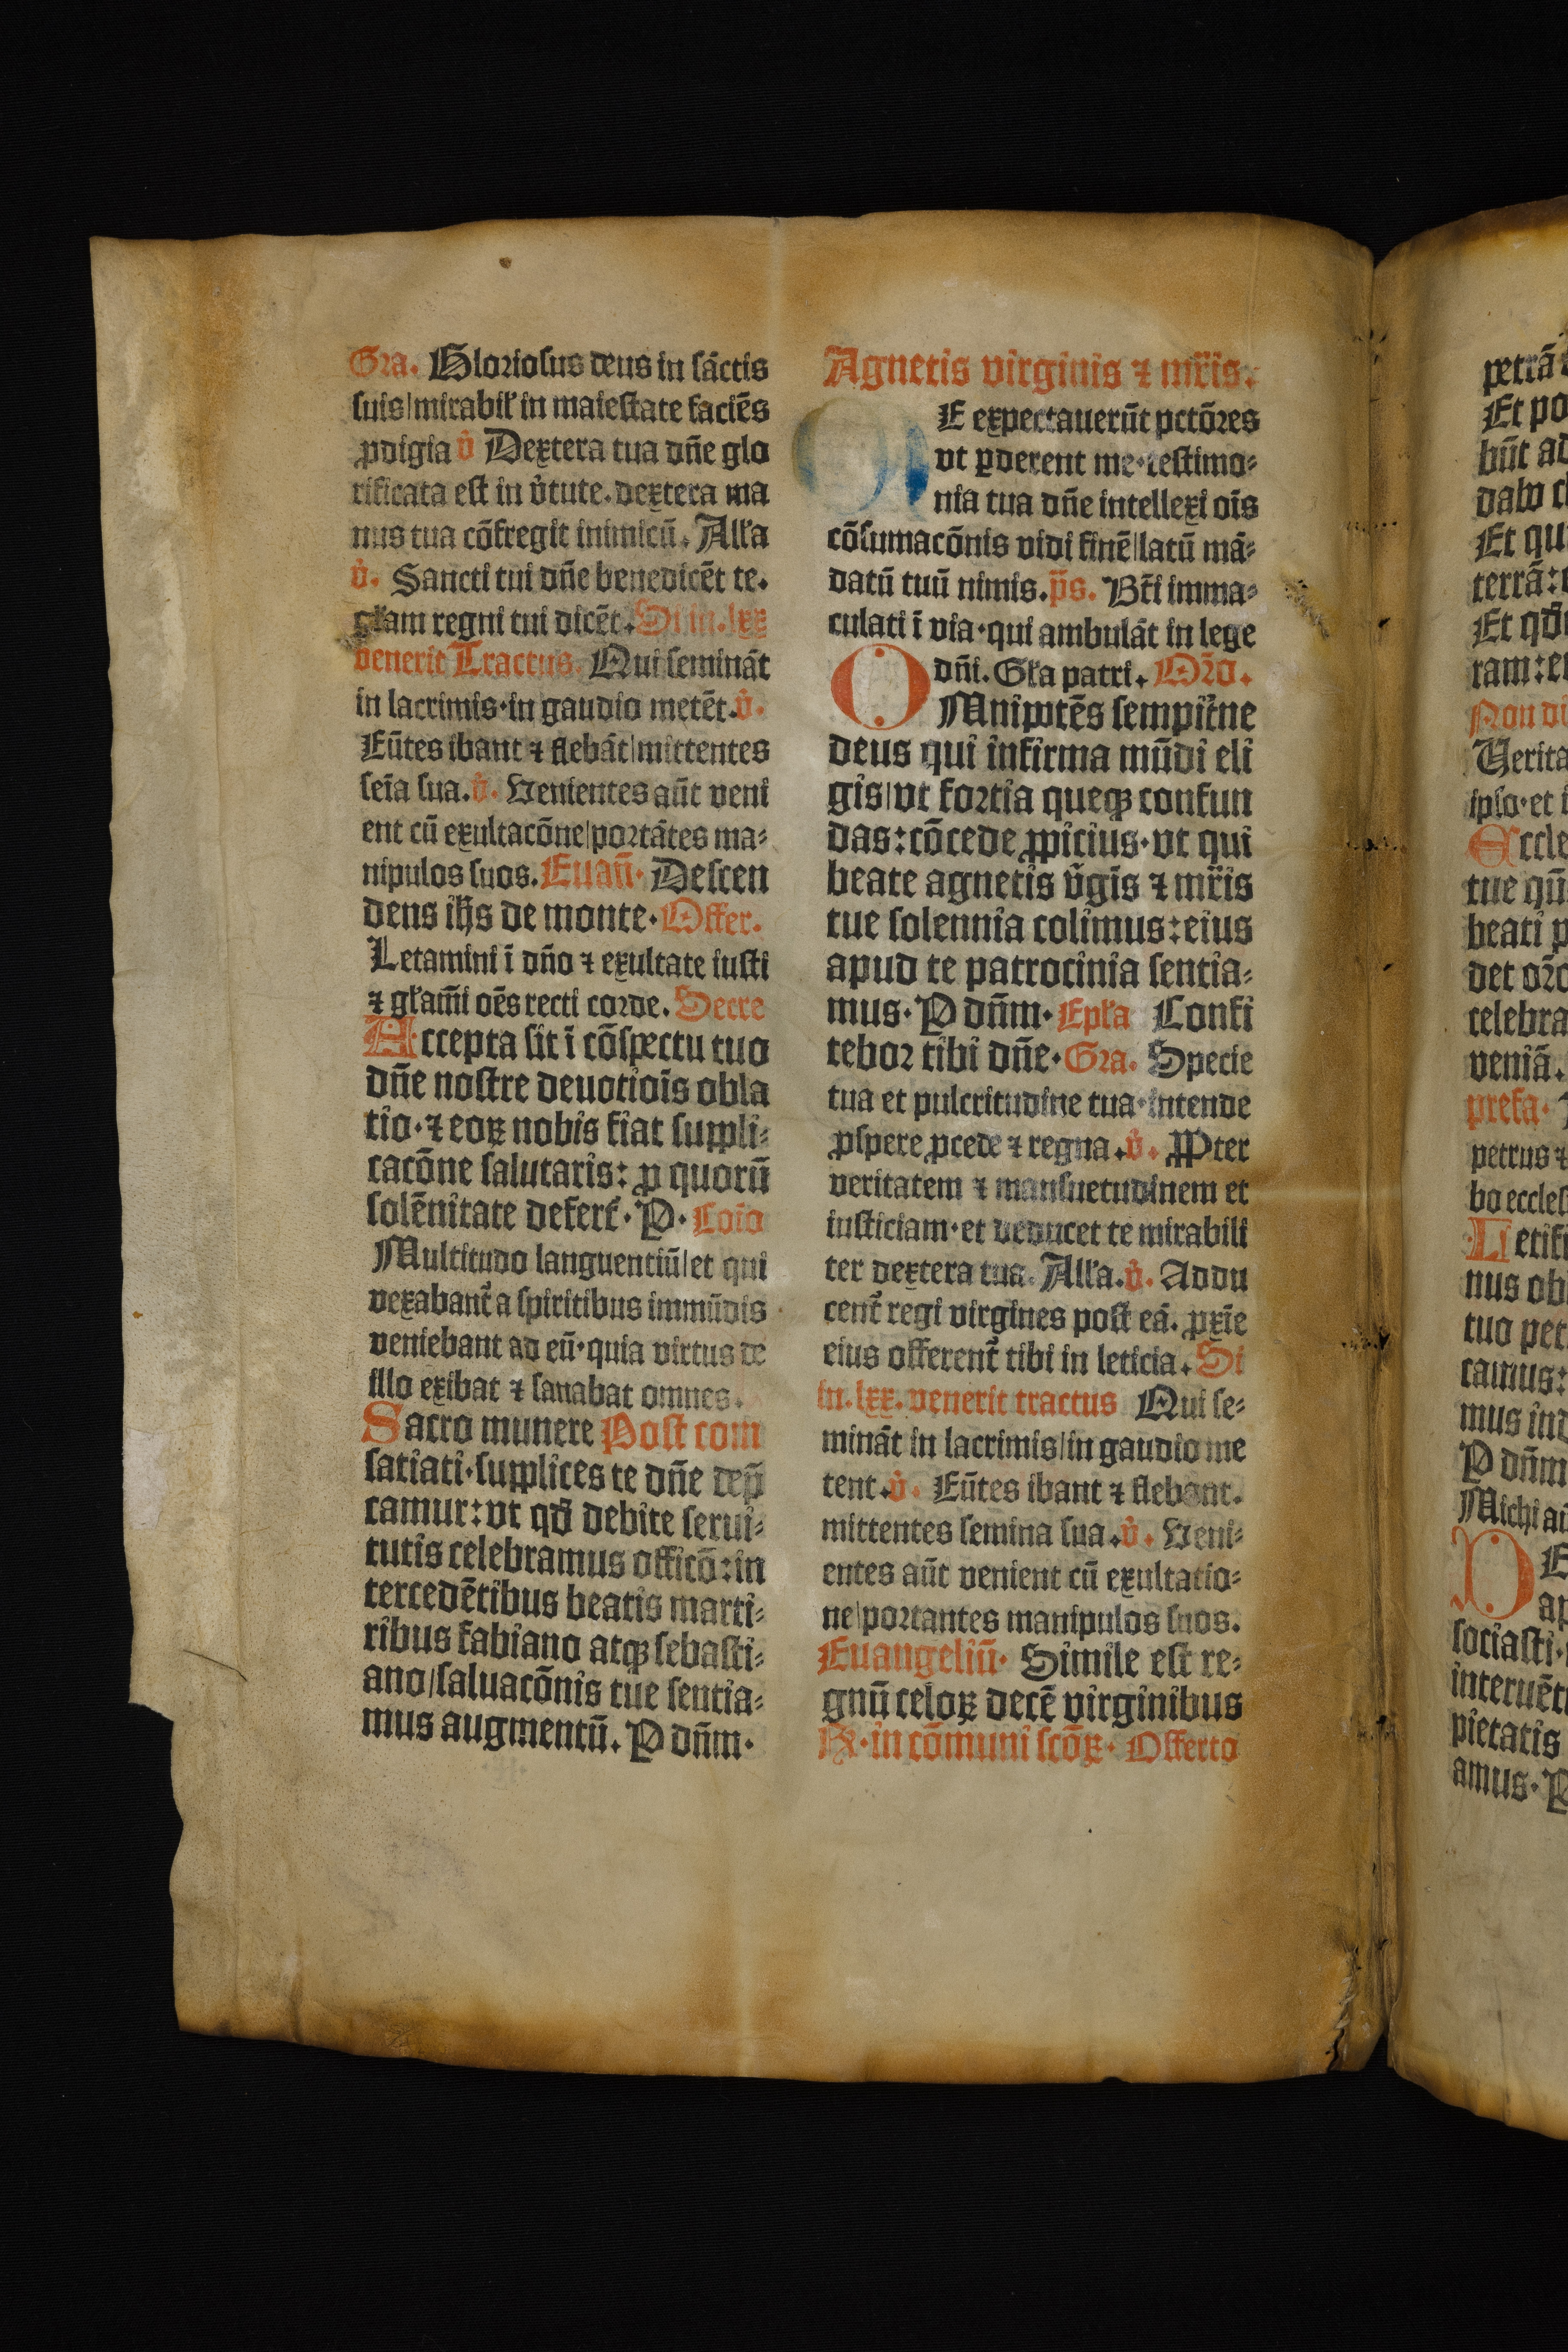 Gra. Gloriosus deus in sāctis
suis/mirabil' in maiestate faciēs
ꝓdigia v̉ Dextera tua dn̄e glo
rificata est in v̉tute. dextera ma
nus tua cōfregit inimicū. All'a
v̉. Sancti tui dn̄e benedicēt te.
gl'am regni tui dicēt. Si in .lxx
venerit Tractus. Qui semināt
in lacrimis·in gaudio metēt. v̉.
Eūtes ibant ⁊ flebāt/mittentes
seīa sua. v̉. Venientes aūt veni
ent cū exultacōne/portātes ma⸗
nipulos suos. Euan̄· Descen
dens ih̄s de monte· Offer.
Letamini ī dn̄o ⁊ exultate iusti
⁊ gl'am̄i oēs recti corde. Secre
Accepta sit ī cōspectu tuo
dn̄e nostre deuotiōis obla
tio·⁊ eoꝝ nobis fiat suppli⸗
cacōne salutaris: ꝓ quorū
solēnitate defert᷑· P· Cōīo
Multitudo languentiū/et qui
vexabant᷑ a spiritibus immūdis
veniebant ad eū·quia virtus de
illo exibat ⁊ sanabat omnes.
Sacro munere Post com
satiati·supplices te dn̄e dep̄
camur: vt qd̄ debite serui⸗
tutis celebramus officō: in
tercedētibus beatis marti⸗
ribus fabiano atqꝫ sebasti⸗
ano/saluacōnis tue sentia⸗
mus augmentū. P dn̄m·
Agnetis virginis ⁊ mr̄is.
ME expectauerūt pctōres
vt ꝑderent me·testimo⸗
nia tua dn̄e intellexi oīs
cōsumacōnis vidi finē/latū mā⸗
datū tuū nimis. p̄s. Bt̄i imma⸗
culati ī via·qui ambulāt in lege
dn̄i. Gl'a patri. Or̄o.
OMnipotēs sempit̉ne
deus qui infirma mūdi eli
gis/vt fortia queqꝫ confun
das: cōcede ꝓpicius·vt qui
beate agnetis v̉gīs ⁊ mr̄is
tue solennia colimus: eius
apud te patrocinia sentia⸗
mus· P dn̄m· Epl'a Confi
tebor tibi dn̄e· Gra. Specie
tua et pulcritudine tua·intende
ꝓspere ꝓcede ⁊ regna. v̉. PPter
veritatem ⁊ mansuetudinem et
iusticiam·et deducet te mirabili
ter dextera tua. All'a. v̉. Addu
cent᷑ regi virgines post eā. ꝓxīe
eius offerent᷑ tibi in leticia. Si
in .lxx. venerit tractus Qui se⸗
mināt in lacrimis/in gaudio me
tent. v̉. Eūtes ibant ⁊ flebant.
mittentes semina sua. v̉. Veni⸗
entes aūt venient cū exultatio⸗
ne/portantes manipulos suos.
Euangeliū· Simile est re⸗
gnū celoꝝ decē virginibus
R· in cōmuni scōꝝ· Offerto
petrā
Et po
būt ad
dabo
Et qu
terrā:
Et qd̄
ram: e
Non di
Verita
ipso·et
Eccle
tue qū
beati p
det or̄o
celebra
veniā.
prefa·
petrus ⁊
bo eccles
Letifi
nus ob
tuo pet
camus:
mus ind
P dn̄m
Michi
DE
ap
sociasti·
interuēt
pietatis
amus· P